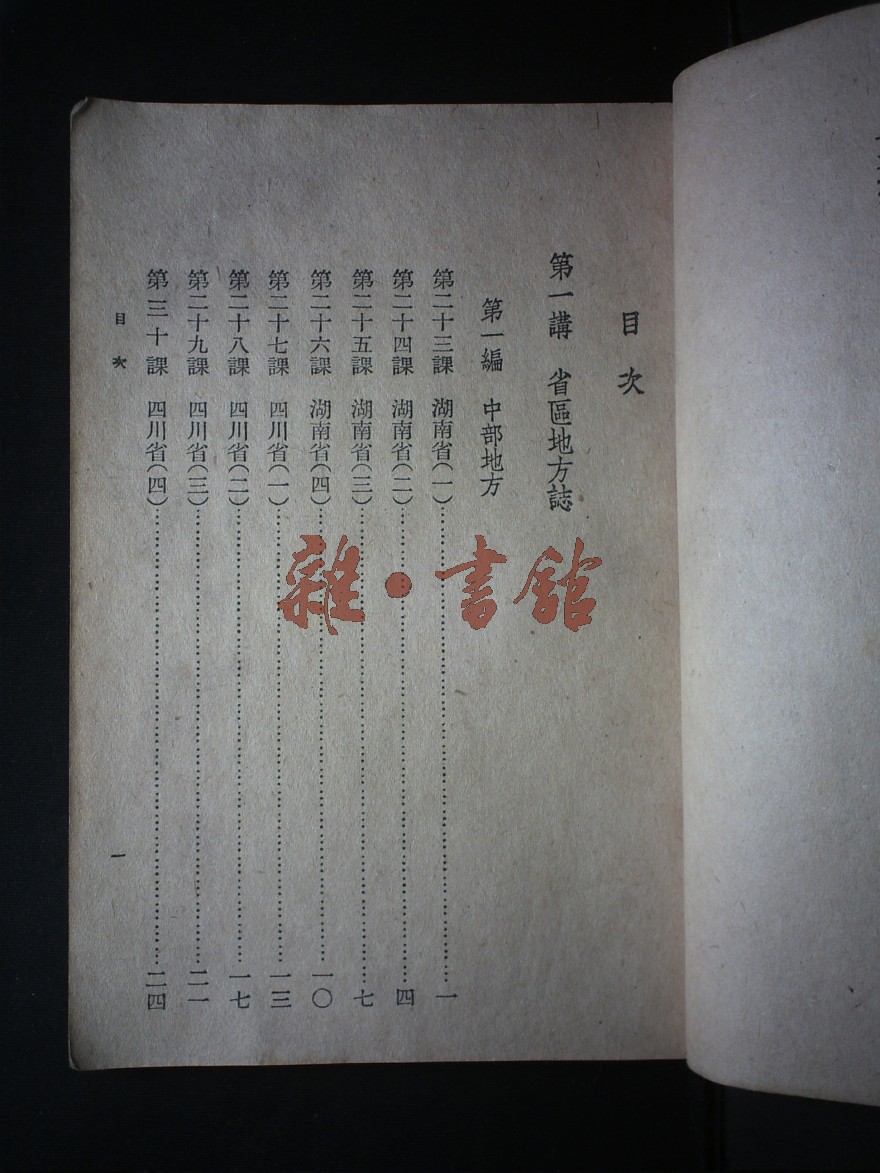 目次
第一講 省區地方誌
第一編 中部地方
第二十三課 湖南省(一)……一
第二十四課 湖南省(二)……四
第二十五課 湖南省(三)……七
第二十六課 湖南省(四)……一〇
第二十七課 四川省(一)……一三
第二十八課 四川省(二)……一七
第二十九課 四川省(三)……二一
第三十課 四川省(四)……二四
目次 一
雜·書館